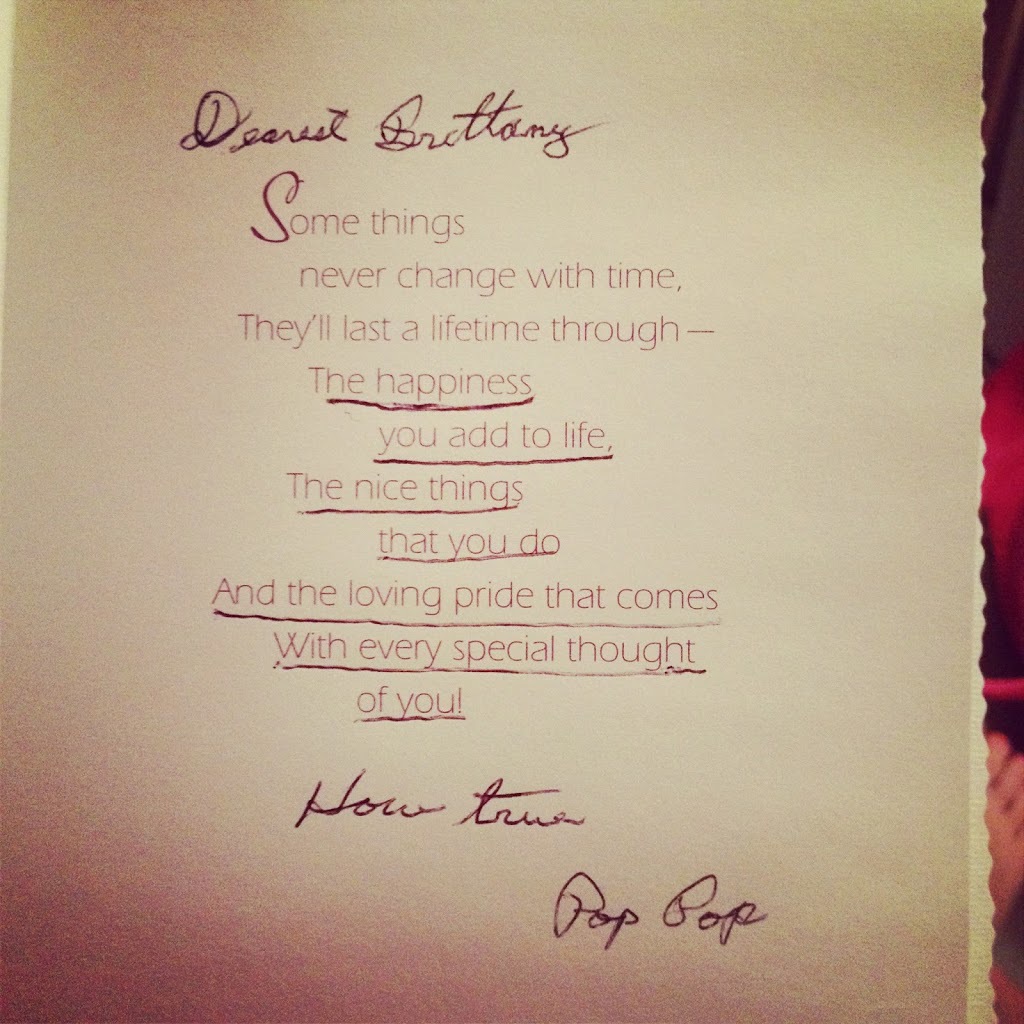 Dearest Brittany
Some things
never change with time,
They'll last a lifetime through—
The happiness
you add to life,
The nice things
that you do
And the loving pride that comes
With every special thought
of you!
How true
Pop Pop